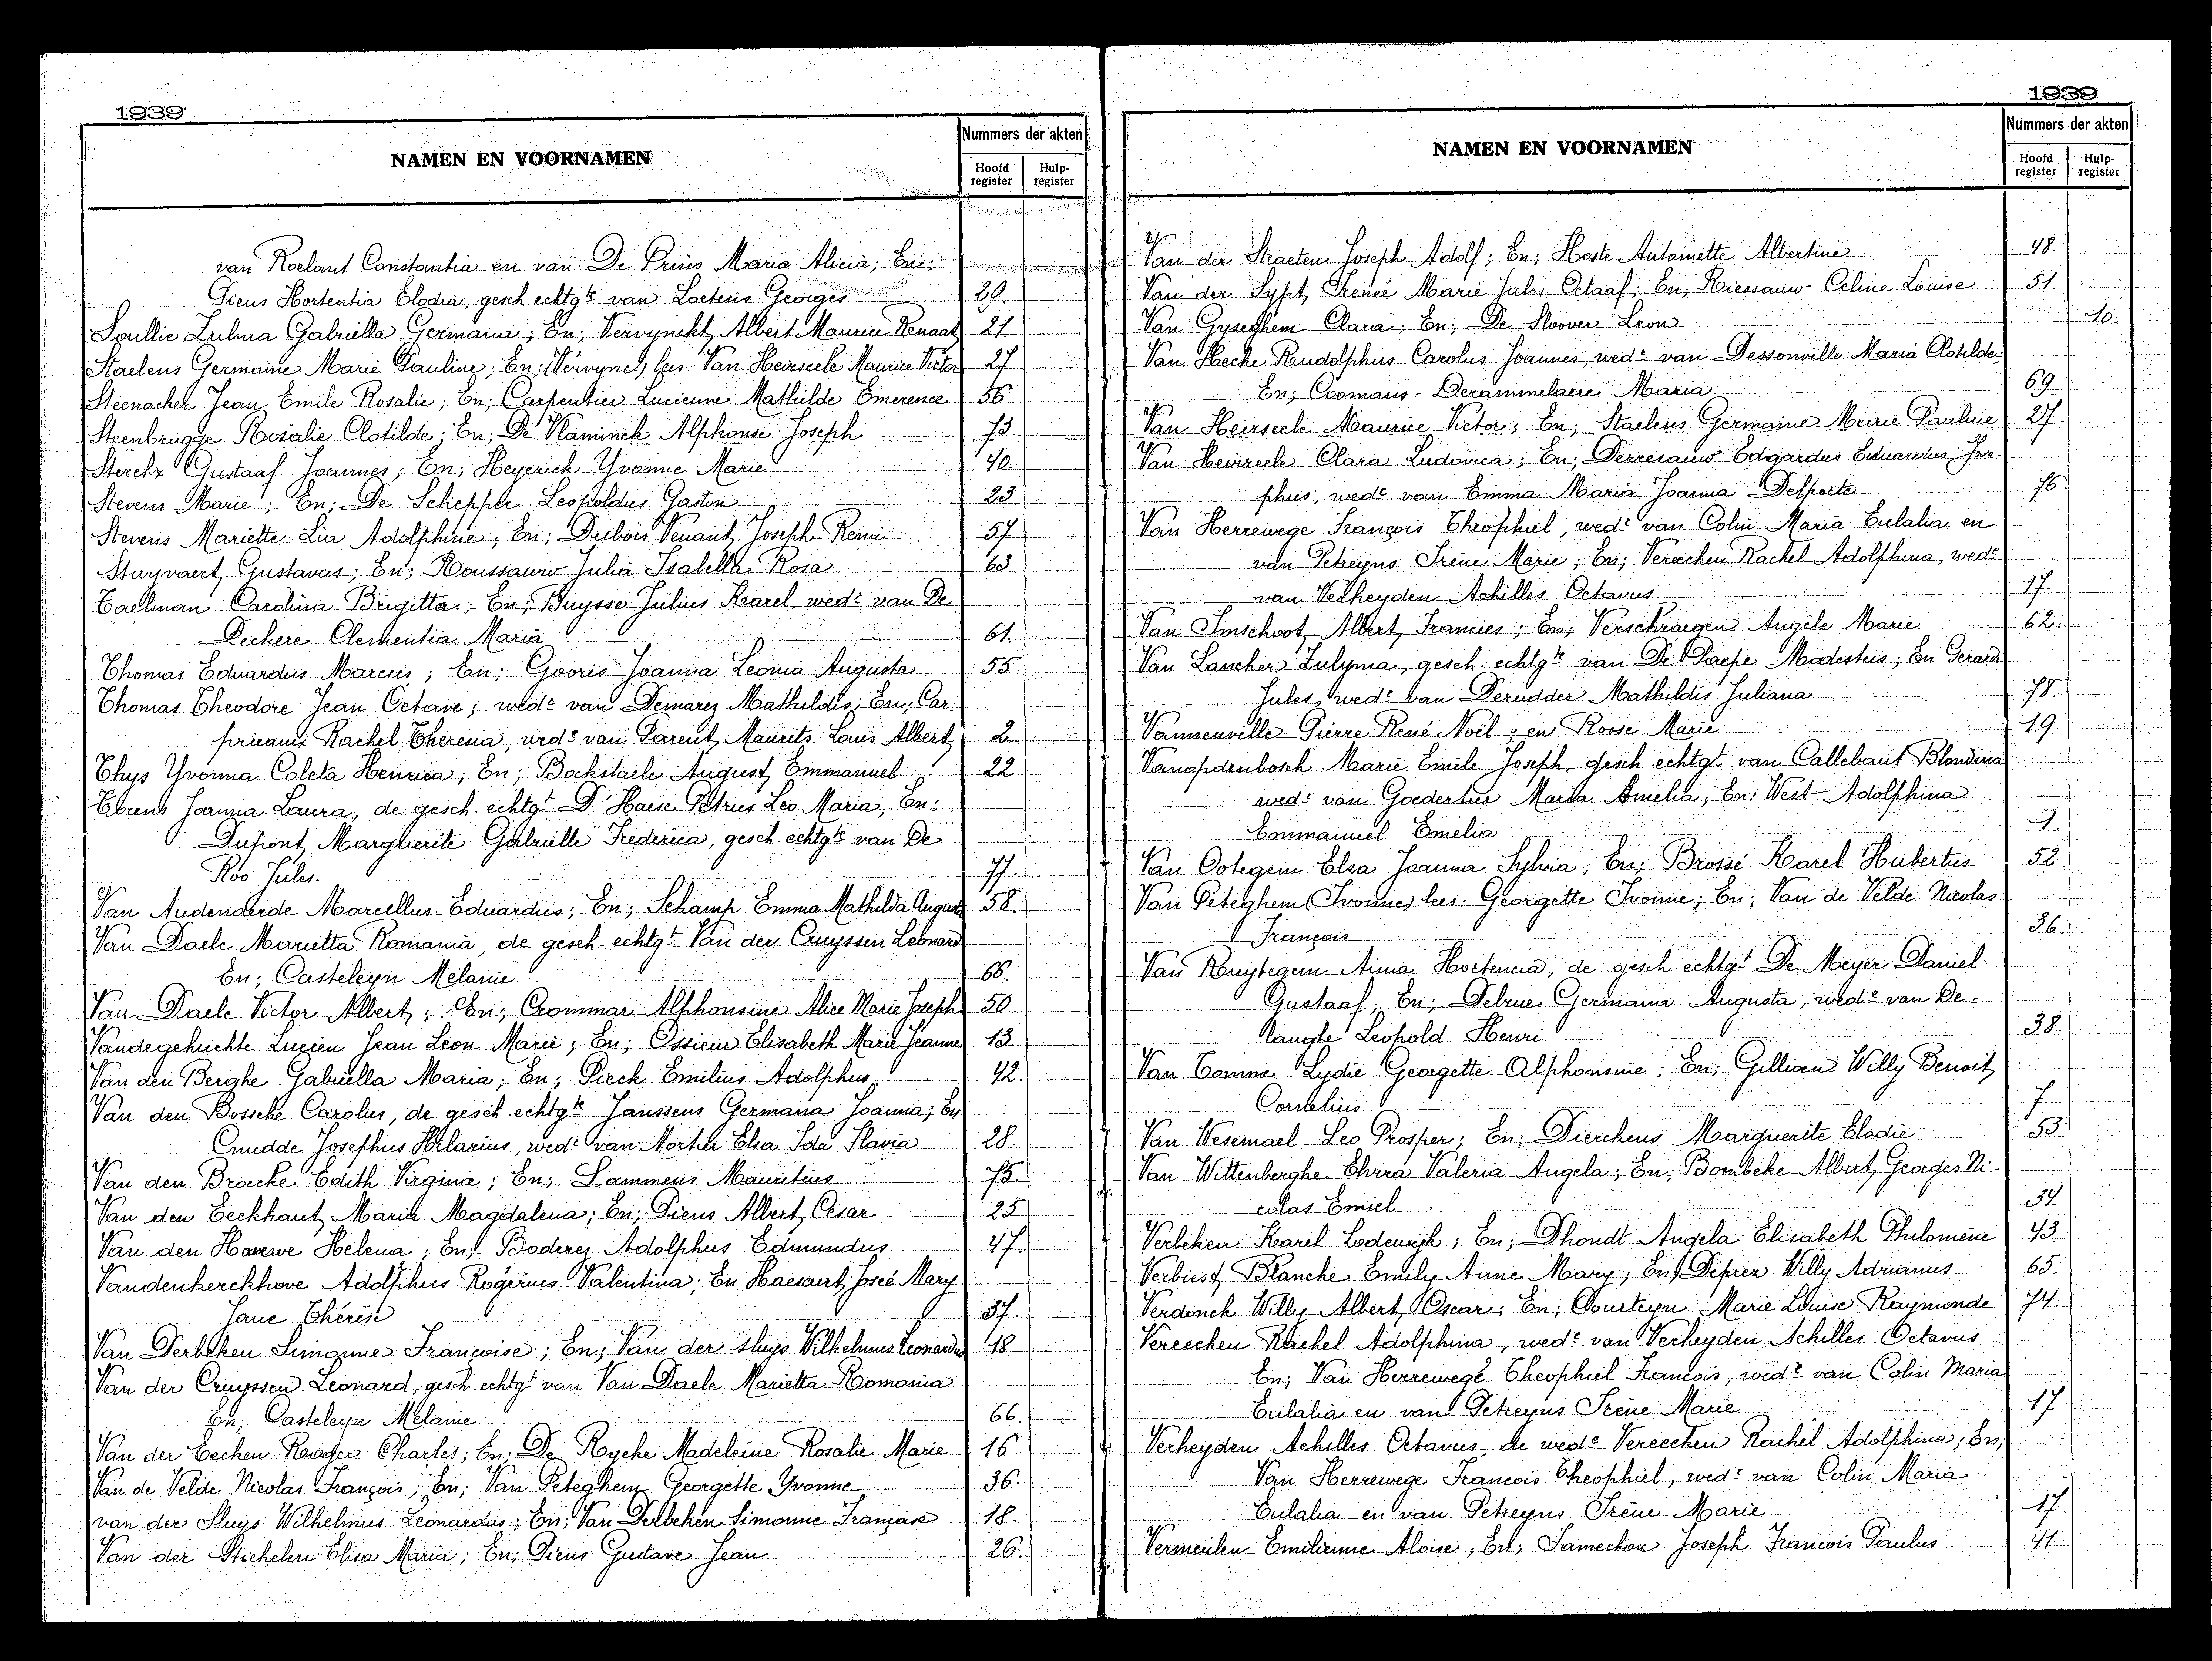 1939
NAMEN EN VOORNAMEN
Nummers der akten
Hoofd register
Hulp-register
van Roelant Constantia en van De Prins Maria Alicia; En;
Piens Hortentia Elodia, gesch echtgte van Loetens Georges 29.
Soullie Zulma Gabriella Germana; En; Vervynckt Albert Maurice Renaat 21.
Staelens Germaine Marie Pauline; En; (Vervync) lees: Van Heirseele Maurice Victor 27
Steenacker Jean Emile Rosalie; En; Carpentier Lucienne Mathilde Emerence 56
Steenbrugge Rosalie Clotilde; En; De Vlaminck Alphonse Joseph 73.
Sterckx Gustaaf Joannes; En; Heyerick Yvonne Marie 40.
Stevens Marie; En; De Schepper Leopoldus Gaston 23
Stevens Mariette Lia Adolphine; En; Dubois Venant Joseph Remi 57
Stuyvaert Gustavus; En; Roussauw Julia Isabella Rosa 63
Taelman Carolina Brigitta; En; Buysse Julius Karel wedr van De
Deckere Clementia Maria 61.
Thomas Eduardus Marcus; En; Gooris Joanna Leonia Augusta 55.
Thomas Theodore Jean Octave; wedr van Demarez Mathildis; En; Car-
prieaux Rachel Theresia, wede van Parent Maurits Louis Albert 2
Thys Yvonna Coleta Henrica; En; Bockstaele August Emmanuel 22.
Joanna Laura, de gesch. echtgt D'Haese Petrus Leo Maria, En;
Dupont Marguerite Gabrielle Frederica, gesch. echtgte van De
Roo Jules. 77.
Van Audenaerde Marcellus Eduardus; En; Schamp Emma Mathilda Augusta 58.
Van Daele Marietta Romania, de gesch. echtgt Van der Cruyssen Leonard
En; Casteleyn Melanie 66.
Van Daele Victor Albert; En; Crommar Alphonsine Alice Marie Joseph 50
Vandegehuchte Lucien Jean Leon Marie; En; Ossieur Elisabeth Marie Jeanne 13.
Van den Berghe Gabriella Maria; En; Pieck Emilius Adolphus 42.
Van den Bossche Carolus, de gesch echtgte Janssens Germana Joanna; En
Cnudde Josephus Hilarius, wedr van Mortier Elsa Ida Flavia 28.
Van den Broecke Edith Virginia; En; Lammens Mauritius 75.
Van den Eeckhaut Maria Magdalena; En; Piens Albert César 25
Van den Hauwe Helena; En; Boderez Adolphus Edmundus 47.
Vandenkerckhove Adolphus Rogerius Valentina; En Haesaert Josée Mary
Jane Thérèse 37.
Van Derbeken Simonne Françoise; En; Van der sluys Wilhelmus Leonardus 18
Van der Cruyssen Leonard, gesch echtgt van Van Daele Marietta Romania
En; Casteleyn Melanie 66.
Van der Eecken Roger Charles; En; De Rycke Madeleine Rosalie Marie 16
Van de Velde Nicolas François; En; Van Peteghem Georgette Yvonne 36.
van der Sluys Wilhelmus Leonardus; En; Van Derbeken Simonne Françoise 18.
Van der Stichelen Elisa Maria; En; Piens Gustave Jean 26.
1939
NAMEN EN VOORNAMEN
Nummers der akten
Hoofd register
Hulp-register
Van der Straeten Joseph Adolf; En; Hoste Antoinette Albertine 48.
Van der Sypt Irenée Marie Jules Octaaf; En; Riessauw Celine Louise 51.
Van Gyseghem Clara; En; De Sloover Leon 10.
Van Hecke Rudolphus Carolus Joannes, wedr van Dessonville Maria Clotilde;
En; Coomans-Derammelaere Maria 69.
Van Heirseele Maurice Victor; En; Staelens Germaine Marie Pauline 27.
Van Heirzeele Clara Ludovica; En; Derresauw Edgardus Eduardus Jose-
phus, wedr van Emma Maria Joanna Delporte 76.
Van Herrewege François Theophiel, wedr van Colin Maria Eulalia en
van Petreyns Irène Marie; En; Vereecken Rachel Adolphina, wede
van Verheyden Achilles Octavus 17
Van Imschoot Albert Francies; En; Verschraegen Angèle Marie 62.
Van Lancker Zulyma, gesch echtgte van De Paepe Modestus; En Gerard
Jules, wedr van Derudder Mathildis Juliana 78.
Vanneuville Pierre René Noël; en Rosse Marie 19
Vanopdenbosch Marie Emile Joseph, gesch echtgt van Callebaut Blondina
wedr van Goedertier Maria Amelia; En: West Adolphina
Emmanuel Emelia 1.
Van Ootegem Elsa Joanna Sylvia; En; Brossé Karel Hubertus 52
Van Peteghem (Ivonne) lees: Georgette Ivonne; En; Van de Velde Nicolas
François 36.
Van Ruytegem Anna Hortencia, de gesch echtgt De Meyer Daniel
Gustaaf; En; Delrue Germana Augusta, wede van De=
langhe Leopold Henri 38.
Van Tomme Lydie Georgette Alphonsine; En; Gillioen Willy Benoit
Cornelius 7
Van Wesemael Leo Prosper; En; Dierckens Marguerite Elodie 53.
Van Wittenberghe Elvira Valeria Angela; En; Bombeke Albert Georges Ni-
colas Emiel 34.
Verbeken Karel Lodewijk; En; Dhondt Angela Elisabeth Philomène 43.
Verbiest Blanche Emily Anne Mary; En; Deprez Willy Adrianus 65.
Verdonck Willy Albert Oscar; En; Courteyn Marie Louise Raymonde 74.
Vereecken Rachel Adolphina, wede van Verheyden Achilles Octavus
En; Van Herrewege Theophiel Francois, wedr van Colin Maria
Eulalia en van Petreyns Irène Marie 17
Verheyden Achilles Octavus, de wede Vereecken Rachel Adolphina; En;
Van Herrewege Francois Theophiel, wedr van Colin Maria
Eulalia en van Petreyns Irène Marie 17.
Vermeulen Emilienne Aloise; En; Samechon Joseph Francois Paulus 41.